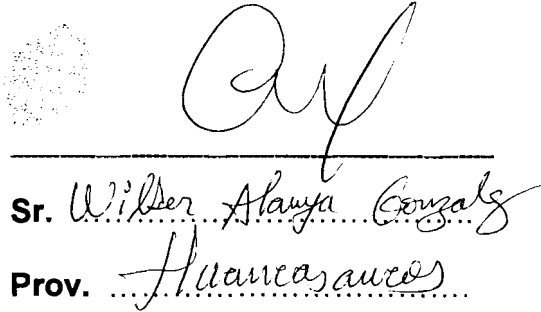 Sr. Wilber Alanya Gonzalz
Prov. Huancasancos